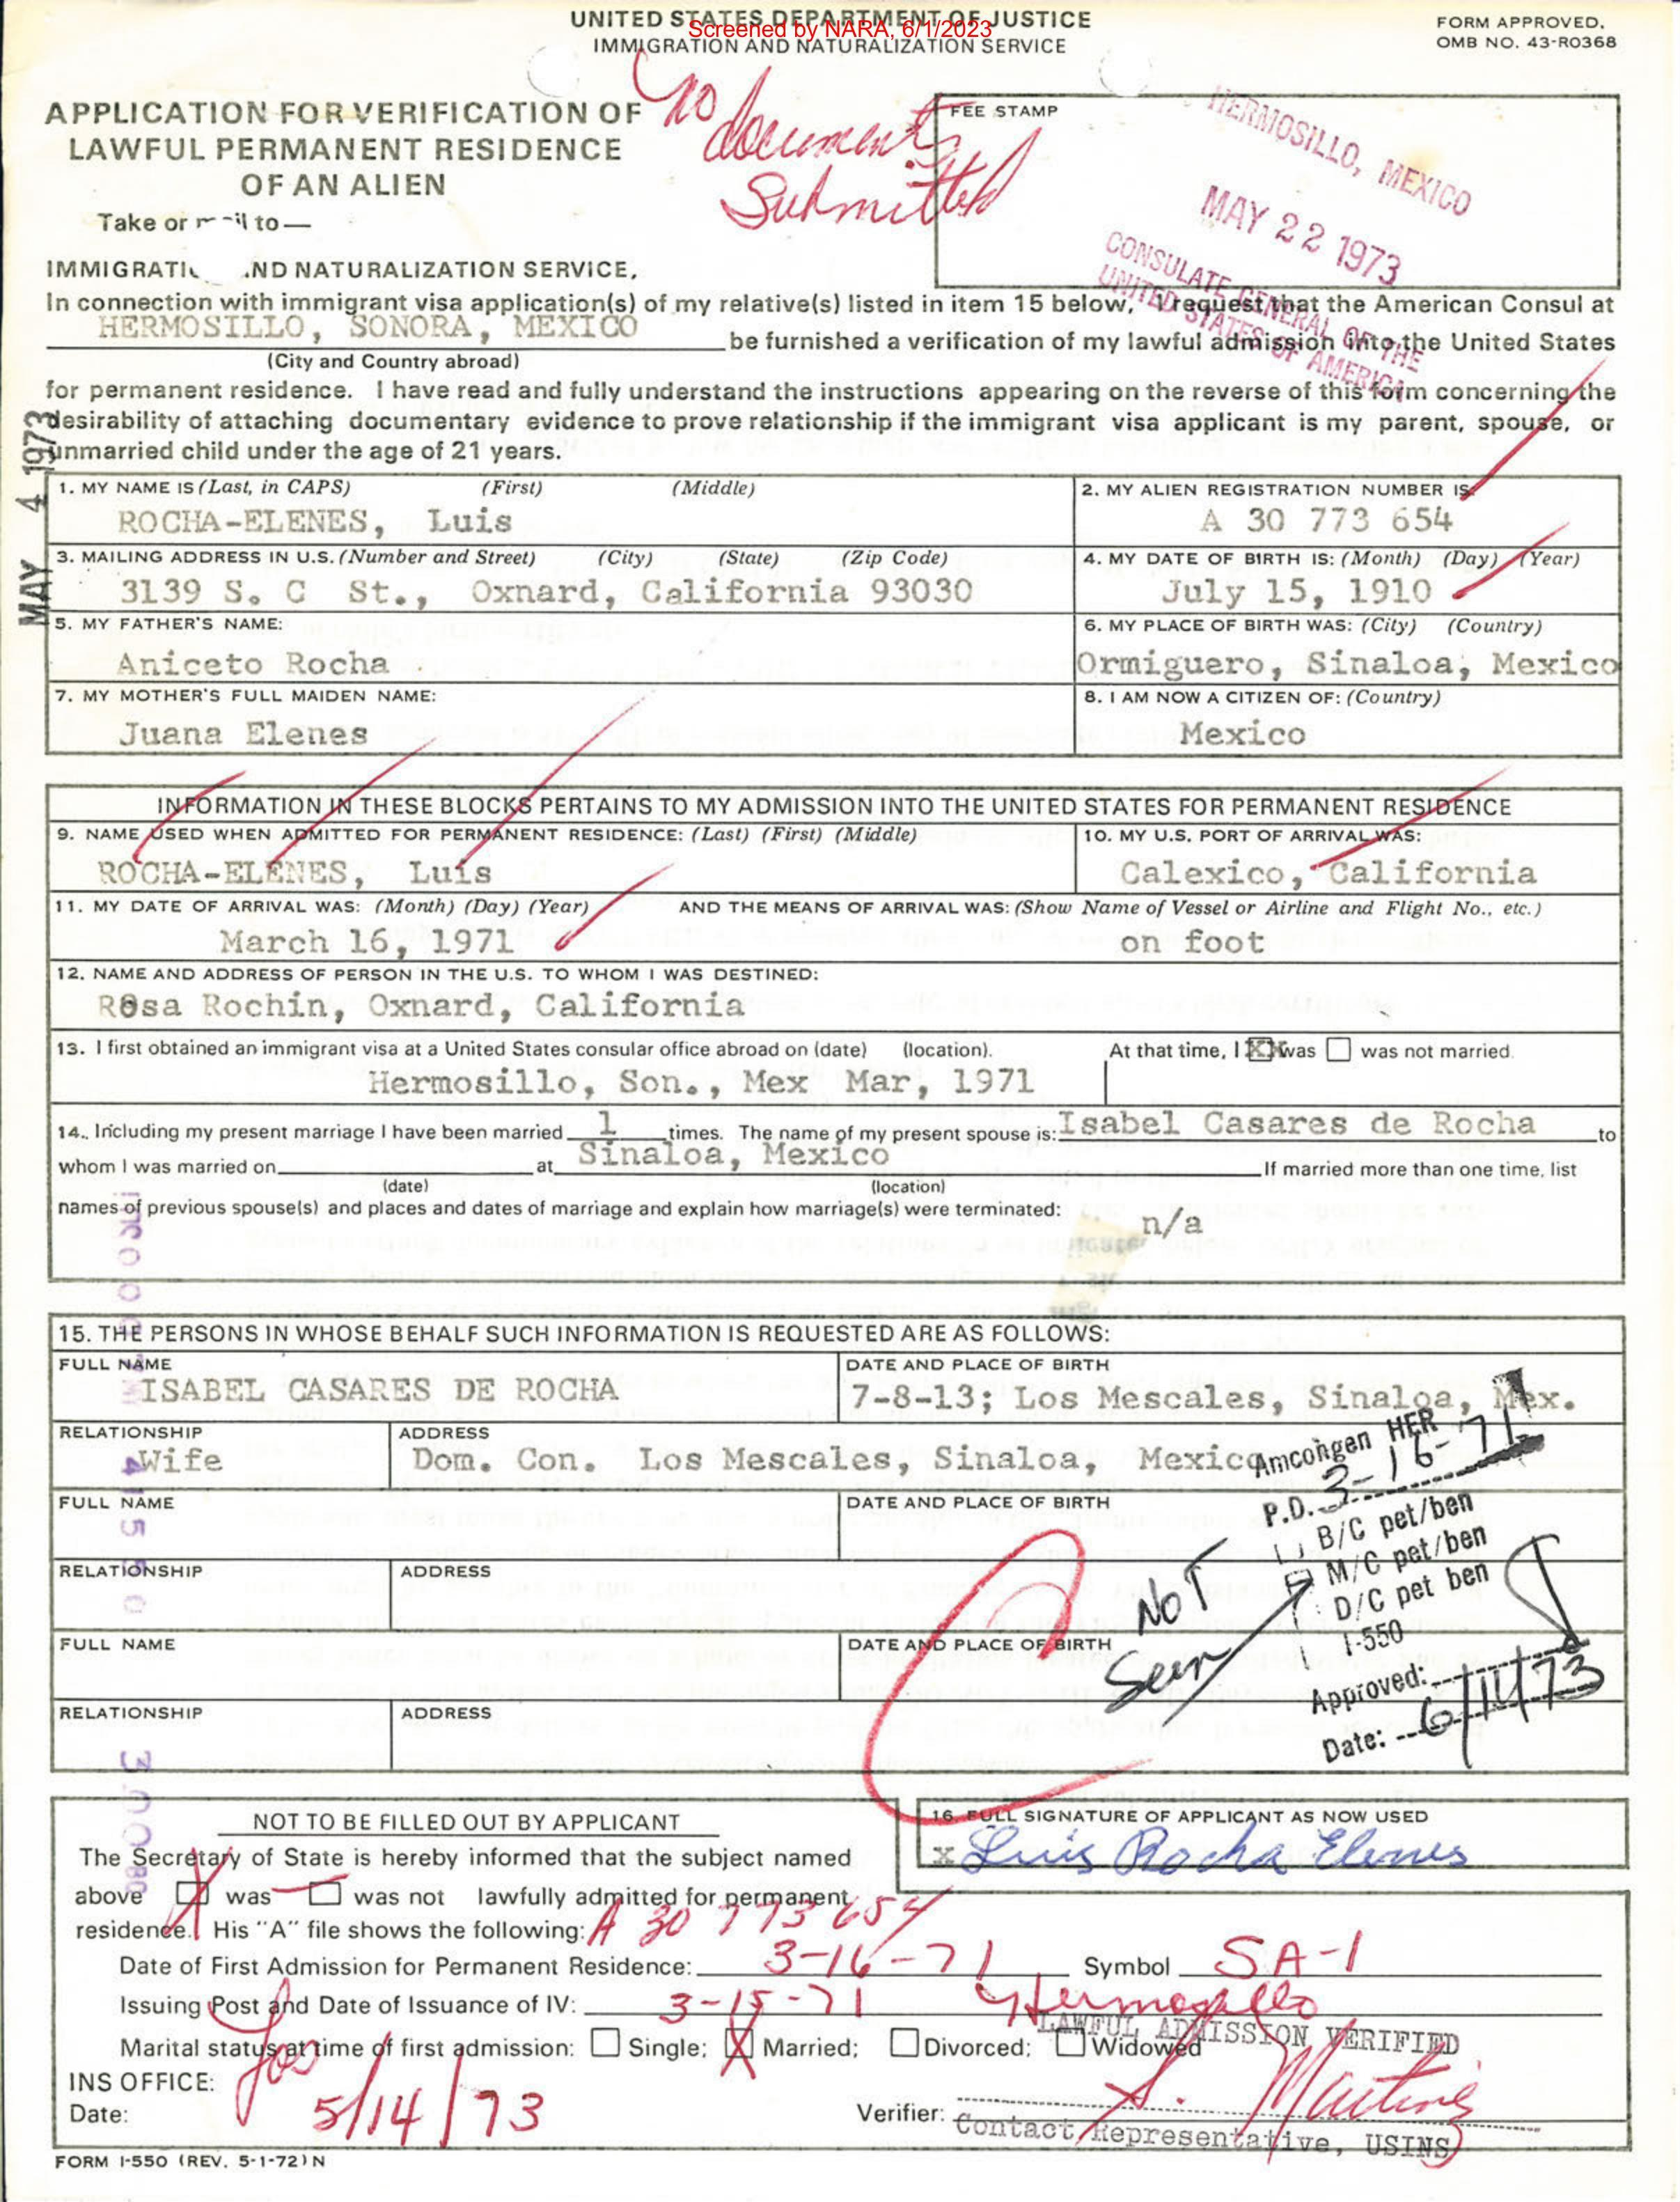 UNITED STATES DEPARTMENT OF JUSTICE
Screened by NARA, 6/1/2023
IMMIGRATION AND NATURALIZATION SERVICE
FORM APPROVED.
OMB NO. 43-R0368
APPLICATION FOR VERIFICATION OF
LAWFUL PERMANENT RESIDENCE
OF AN ALIEN
no
document
Submitted
FEE STAMP
HERMOSILLO, MEXICO
MAY 22 1973
CONSULATE GENERAL OF THE
UNITED STATES OF AMERICA
Take or to—
IMMIGRATI ND NATURALIZATION SERVICE,
In connection with immigrant visa application(s) of my relative(s) listed in item 15 below, I request that the American Consul at
HERMOSILLO, SONORA, MEXICO be furnished a verification of my lawful admission into the United States
(City and Country abroad)
for permanent residence. I have read and fully understand the instructions appearing on the reverse of this form concerning the
desirability of attaching documentary evidence to prove relationship if the immigrant visa applicant is my parent, spouse, or
unmarried child under the age of 21 years.
MAY 4 1973
1. MY NAME IS (Last, in CAPS) (First) (Middle)
ROCHA-ELENES, Luis
2. MY ALIEN REGISTRATION NUMBER IS:
A 30 773 654
3. MAILING ADDRESS IN U.S. (Number and Street) (City) (State) (Zip Code)
3139 S. C St., Oxnard, California 93030
4. MY DATE OF BIRTH IS: (Month) (Day) (Year)
July 15, 1910
5. MY FATHER'S NAME:
Aniceto Rocha
6. MY PLACE OF BIRTH WAS: (City) (Country)
Ormiguero, Sinaloa, Mexico
7. MY MOTHER'S FULL MAIDEN NAME:
Juana Elenes
8. I AM NOW A CITIZEN OF: (Country)
Mexico
INFORMATION IN THESE BLOCKS PERTAINS TO MY ADMISSION INTO THE UNITED STATES FOR PERMANENT RESIDENCE
9. NAME USED WHEN ADMITTED FOR PERMANENT RESIDENCE: (Last) (First) (Middle)
ROCHA-ELENES, Luis
10. MY U.S. PORT OF ARRIVAL WAS:
Calexico, California
11. MY DATE OF ARRIVAL WAS: (Month) (Day) (Year) AND THE MEANS OF ARRIVAL WAS: (Show Name of Vessel or Airline and Flight No., etc.)
March 16, 1971 on foot
12. NAME AND ADDRESS OF PERSON IN THE U.S. TO WHOM I WAS DESTINED:
Rosa Rochin, Oxnard, California
13. I first obtained an immigrant visa at a United States consular office abroad on (date) (location). At that time, I XX was was not married.
Hermosillo, Son., Mex Mar, 1971
14. Including my present marriage I have been married 1 times. The name of my present spouse is: Isabel Casares de Rocha to
whom I was married on at Sinaloa, Mexico If married more than one time, list
(date) (location)
names of previous spouse(s) and places and dates of marriage and explain how marriage(s) were terminated:
n/a
15. THE PERSONS IN WHOSE BEHALF SUCH INFORMATION IS REQUESTED ARE AS FOLLOWS:
FULL NAME DATE AND PLACE OF BIRTH
ISABEL CASARES DE ROCHA 7-8-13; Los Mescales, Sinaloa, Mex.
RELATIONSHIP ADDRESS
Wife Dom. Con. Los Mescales, Sinaloa, Mexico
Amcongen HER
P.D. 3-16-71
B/C pet/ben
M/C pet/ben
D/C pet ben
I-550
Approved:
Date: 6/11/73
NOT
Seen
FULL NAME DATE AND PLACE OF BIRTH
RELATIONSHIP ADDRESS
FULL NAME DATE AND PLACE OF BIRTH
RELATIONSHIP ADDRESS
NOT TO BE FILLED OUT BY APPLICANT
16. FULL SIGNATURE OF APPLICANT AS NOW USED
x Luis Rocha Elenes
The Secretary of State is hereby informed that the subject named
above was was not lawfully admitted for permanent
residence. His "A" file shows the following: A 30 773 654
Date of First Admission for Permanent Residence: 3-16-71 Symbol SA-1
Issuing Post and Date of Issuance of IV: 3-15-71 Hermosillo
LAWFUL ADMISSION VERIFIED
Marital status at time of first admission: Single; X Married; Divorced; Widowed
INS OFFICE: Los
Date: 5/14/73
Verifier: S. Martinez
Contact Representative, USINS
FORM I-550 (REV. 5-1-72) N